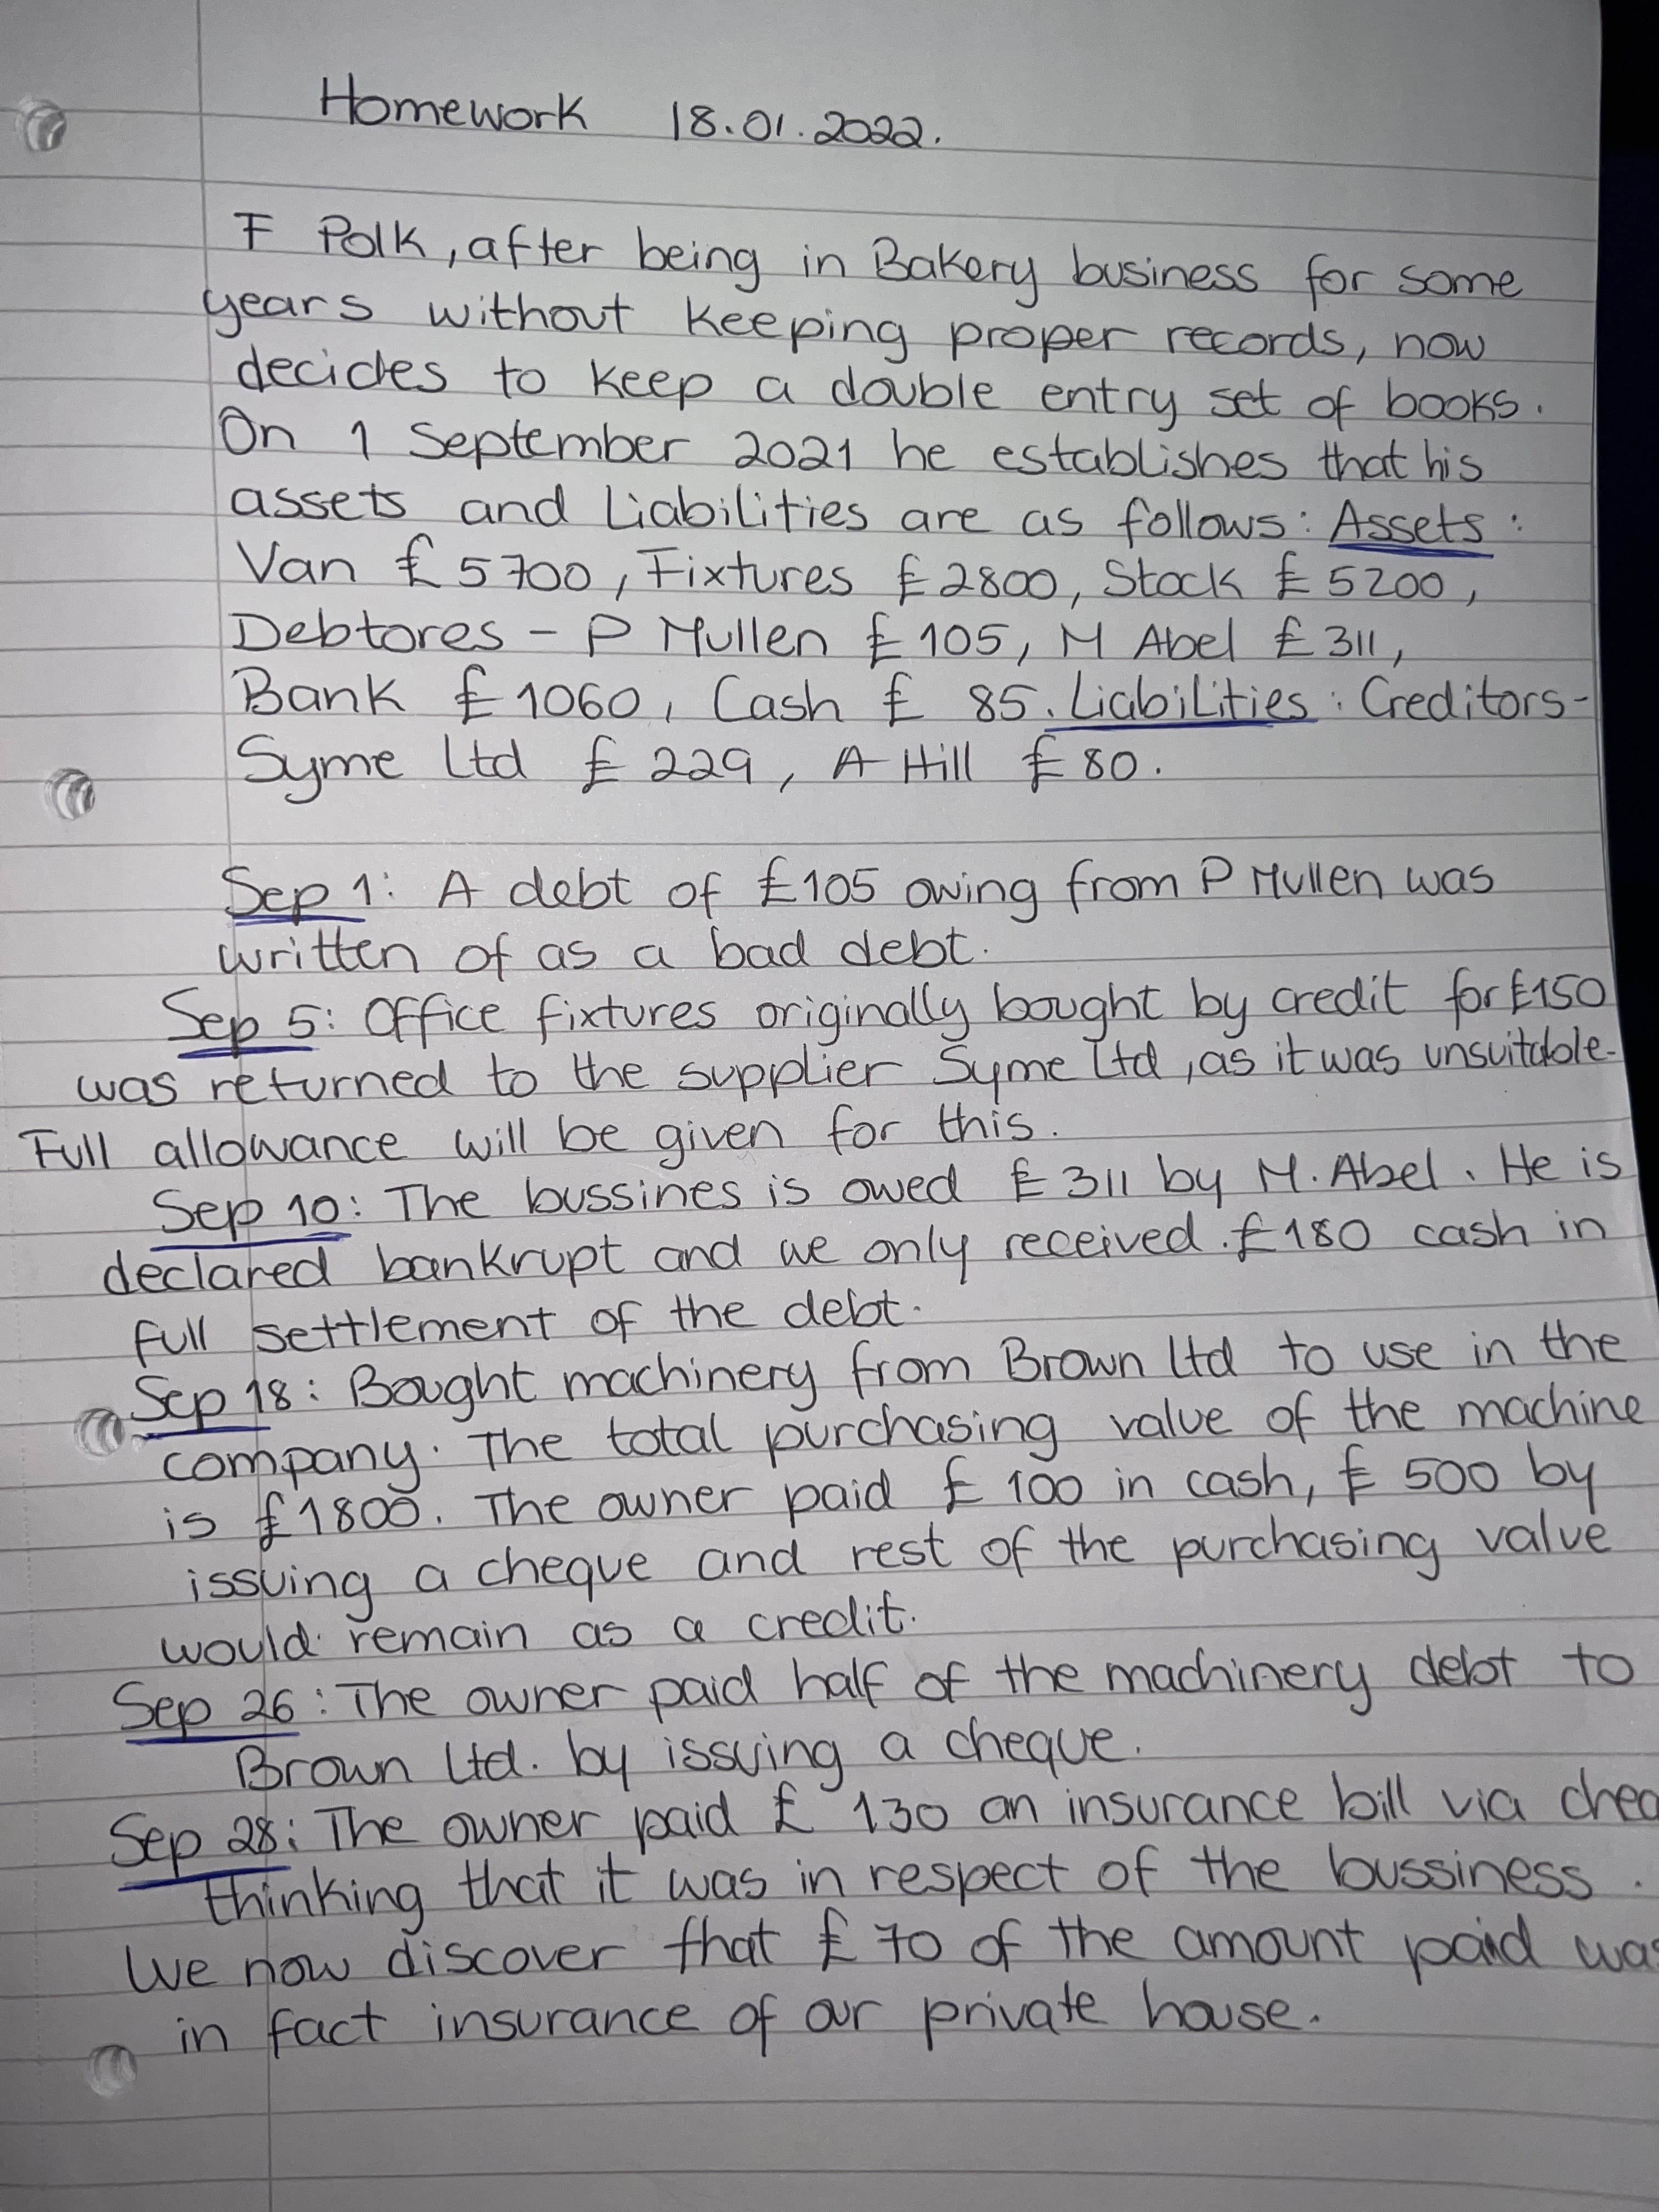 Homework 18.01.2022.
F Polk, after being in Bakery business for some
years without keeping proper records, now
decides to keep a double entry set of books.
On 1 September 2021 he establishes that his
assets and Liabilities are as follows: Assets:
Van £5700, Fixtures £2800, Stock £5200,
Debtores - P Mullen £105, M Abel £311,
Bank £1060, Cash £ 85. Liabilities: Creditors-
Syme Ltd £ 229, A Hill £80.
Sep 1: A debt of £105 owing from P Mullen was
written of as a bad debt.
Sep 5: Office fixtures originally bought by credit for £150
was returned to the supplier Syme Ltd, as it was unsuitable.
Full allowance will be given for this.
Sep 10: The bussines is owed £311 by M. Abel. He is
declared bankrupt and we only received. £180 cash in
full settlement of the debt.
Sep 18: Bought machinery from Brown Ltd to use in the
company. The total purchasing value of the machine
is £1800. The owner paid £ 100 in cash, £ 500 by
issuing a cheque and rest of the purchasing value
would remain as a credit.
Sep 26: The owner paid half of the machinery debt to
Brown Ltd. by issuing a cheque.
Sep 28: The owner paid £ 130 an insurance bill via cheq
thinking that it was in respect of the bussiness.
We now discover that £ 70 of the amount paid was
in fact insurance of our private house.